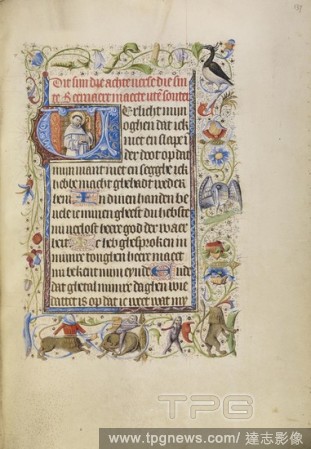 Dit sijn die achte verse die sin
te Bernaert maecte uten souter
Verlicht mijn
oghen dat ick
niet en slape i
der doot op dat
mijn viant niet en segghe ick
hebbe macht ghehadt teghen
hem In dinen handen be
vele ic minen gheest du hebste
mi verlost heere god der waer
heit Ic heb ghesproken in
mijnre tonghen heere maect
mi bekent mijn eynde Ende
dat ghetal mijnre daghen wie
dattet is op dat ic weet wat my
TPG
www.tpgnews.com/達志影像